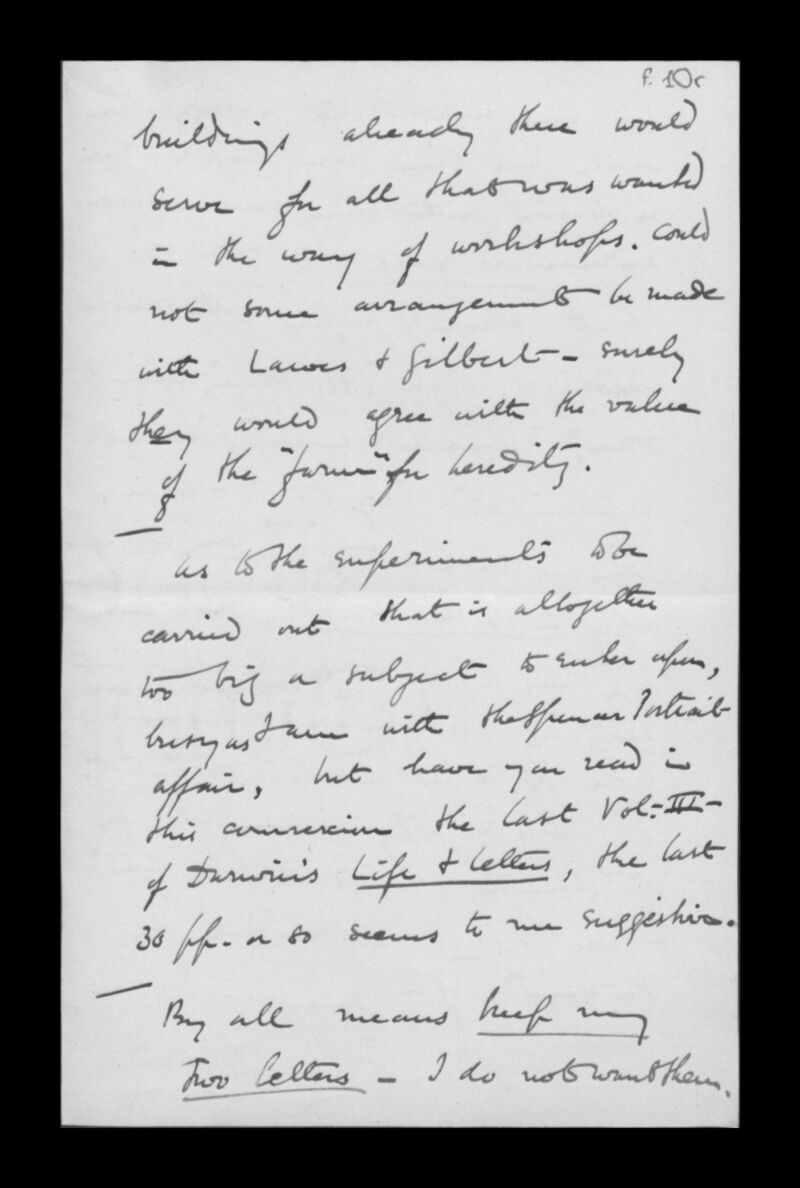 f. 10r
buildings already there would
serve for all that was wanted
in the way of workshops. Could
not some arrangement be made
with Lawes & Gilbert - surely
they would agree with the value
of the "farm" for heredity.
as to the experiments to be
carried out that is altogether
too big a subject to enter upon,
busy as I am with the Spencer Portrait
affair, but have you read in
this connexion the last Vol. - III -
of Darwin's Life & Letters, the last
30 pp. or so seems to me suggestive.
By all means keep my
Two letters - I do not want them.